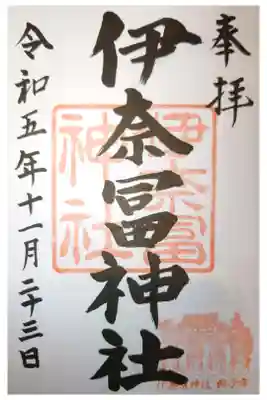 奉拝
伊奈冨神社
伊奈冨神社
令和五年十一月二十三日